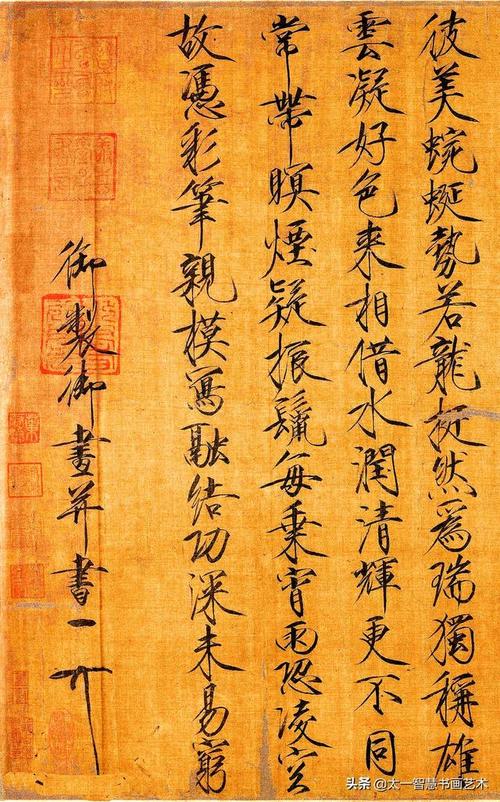 彼美蜿蜒勢若龍挺然爲瑞獨稱雄
雲凝好色来相借水潤清輝更不同
常帶瞑煙疑振鬛每乗宵雨恐凌空
故憑彩筆親模寫融結功深未易窮
御製御畫并書
头条 @太一智慧书画艺术